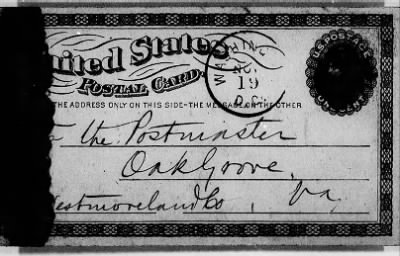 United States
POSTAL CARD.
THE ADDRESS ONLY ON THIS SIDE-THE MESSAGE ON THE OTHER
WASHING
NOV
19
D.C.
the Postmaster
Oak Groove,
Westmoreland Co, Va,